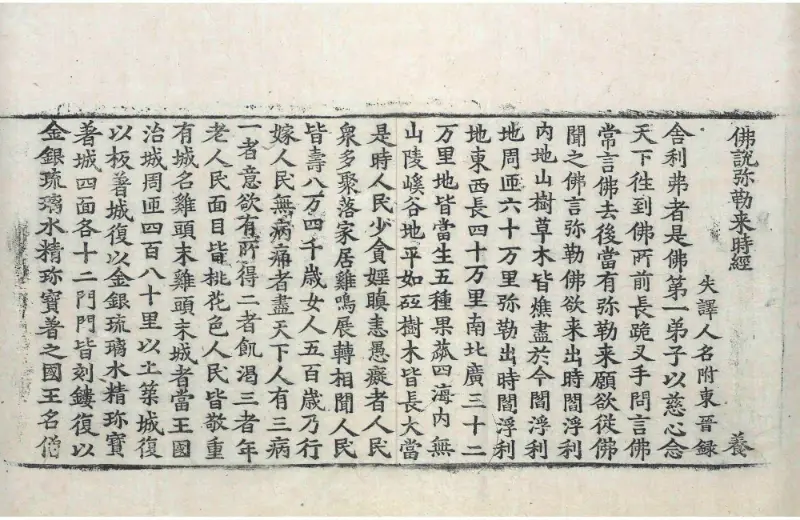 佛說弥勒来時經 養
失譯人名附東晉録
舎利弗者是佛第一弟子以慈心念
天下徃到佛所前長跪叉手問言佛
常言佛去後當有弥勒来願欲從佛
聞之佛言弥勒佛欲来出時閻浮利
内地山樹草木皆燋盡於今閻浮利
地周匝六十万里弥勒出時閻浮利
地東西長四十万里南北廣三十二
万里地皆當生五種果蓏四海内無
山陵嵠谷地平如砥樹木皆長大當
是時人民少貪婬瞋恚愚癡者人民
衆多聚落家居雞鳴展轉相聞人民
皆壽八万四千歳女人五百歳乃行
嫁人民無病痛者盡天下人有三病
一者意欲有所得二者飢渴三者年
老人民面目皆桃花色人民皆敬重
有城名雞頭末雞頭末城者當王國
治城周匝四百八十里以土築城復
以板著城復以金銀琉璃水精珎寶
著城四面各十二門門皆刻鏤復以
金銀琉璃水精珎寶著之國王名僧